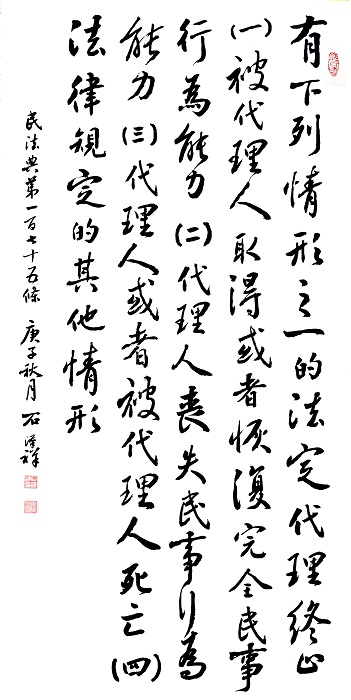 有下列情形之一的法定代理終止
(一)被代理人取得或者恢復完全民事
行為能力(二)代理人喪失民事行為
能力(三)代理人或者被代理人死亡(四)
法律規定的其他情形
民法典第一百七十五條 庚子秋月 石祥